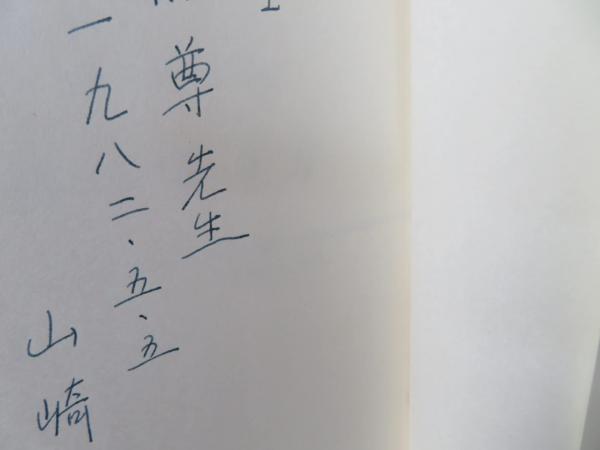 尊先生
一九八二、五、五
山崎